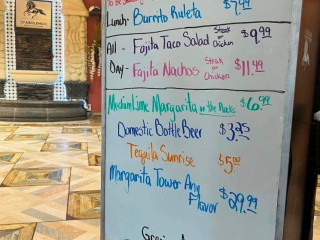 Lunch- Burrito Ruleta $7.99
All - Fajita Taco Salad Steak or Chicken $9.99
Day - Fajita Nachos Steak or Chicken $11.49
Margarita on the Rocks $6.99
Domestic Bottle Beer $3.25
Tequila Sunrise $5.00
Margarita Tower Any
Flavor $29.99